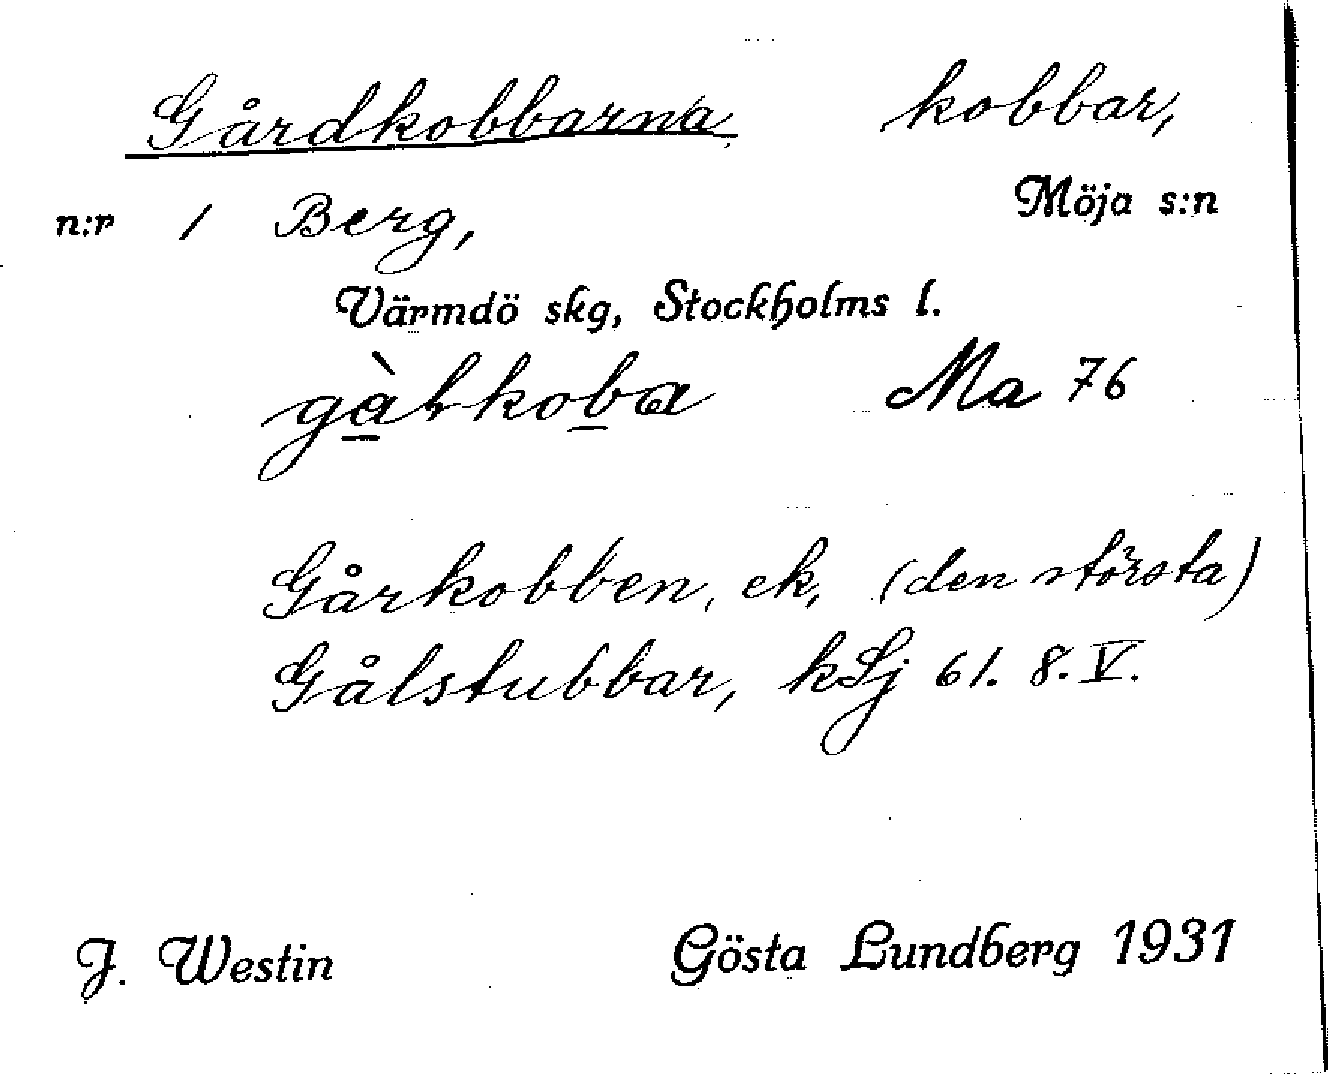 Gårdkobbarna kobbar,
n:r 1 Berg, Möja s:n
Värmdö skg, Stockholms l.
Ma 76
Gårkobben, ek, (den största)
Gålstubbar, kSj 61. 8. V.
J. Westin Gösta Lundberg 1931